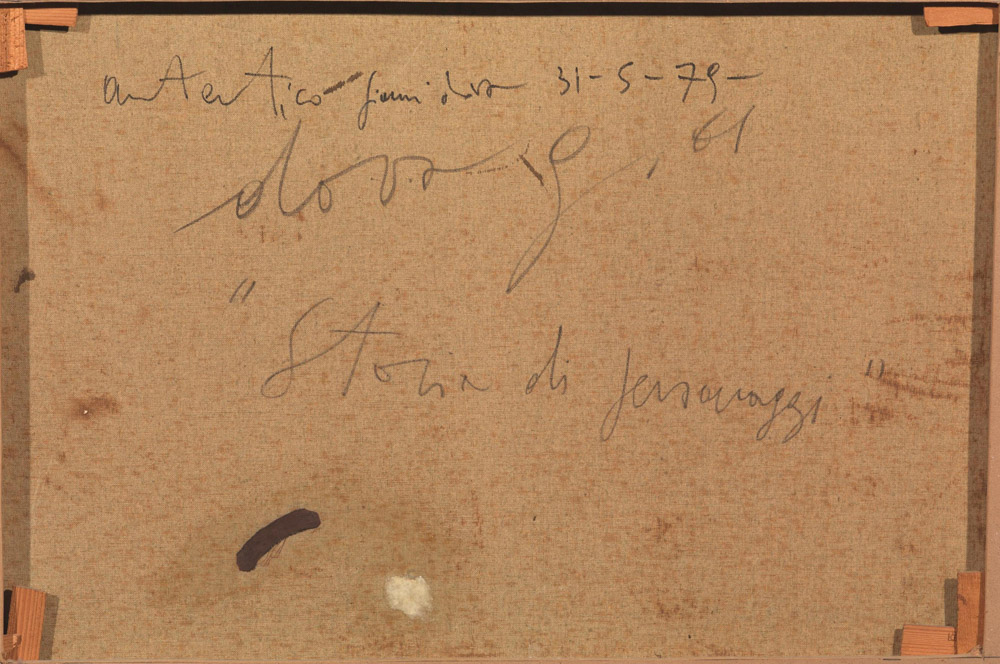 autentico - gianni dova 31-5-79-
dova g, 61
"Storia di personaggi"